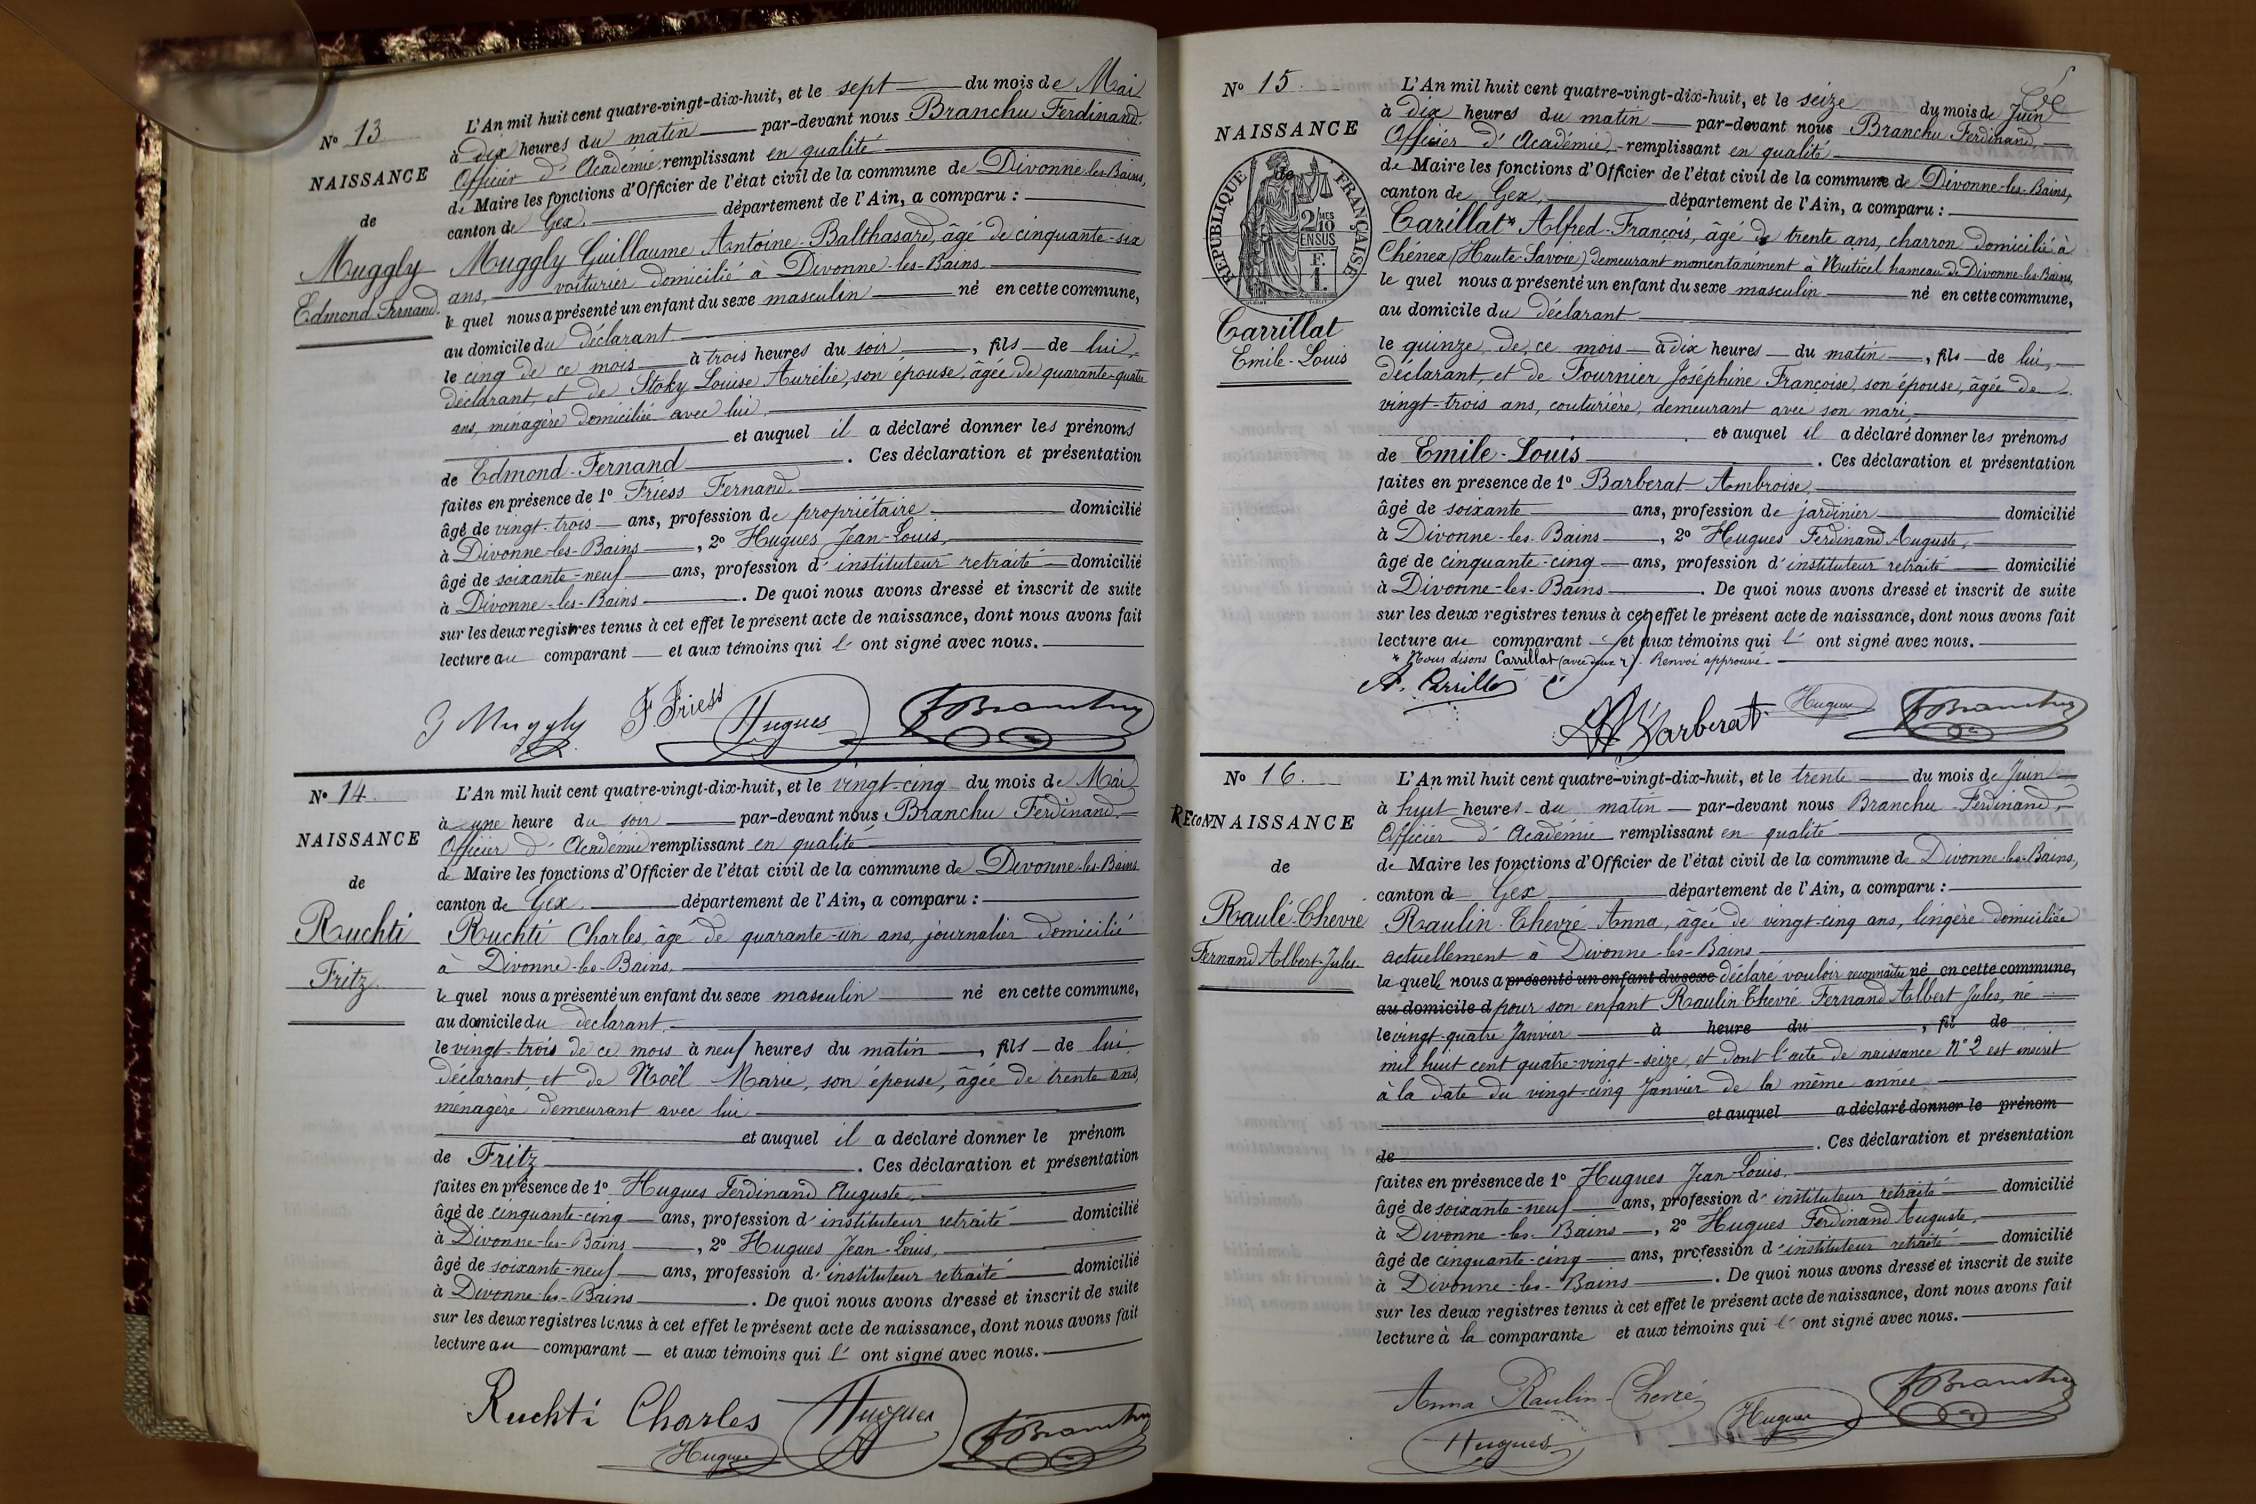 N° 13
NAISSANCE
de
Muggly
Edmond Fernand.
L'An mil huit cent quatre-vingt-dix-huit, et le sept du mois de Mai
à dix heures du matin par-devant nous Branchu Ferdinand.
Officier d'Académie, remplissant en qualité
de Maire les fonctions d'Officier de l'état civil de la commune de Divonne-les-Bains,
canton de Gex, département de l'Ain, a comparu :
Muggly Guillaume Antoine-Balthasard, âgé de cinquante-six
ans, voiturier domicilié à Divonne-les-Bains
le quel nous a présenté un enfant du sexe masculin né en cette commune,
au domicile du déclarant
le cinq de ce mois à trois heures du soir, fils de lui,
déclarant, et de Stoky Louise Aurélie, son épouse, âgée de quarante-quatre
ans, ménagère domiciliée avec lui,
et auquel il a déclaré donner les prénoms
de Edmond-Fernand. Ces déclaration et présentation
faites en présence de 1° Friess Fernand.
âgé de vingt-trois ans, profession de propriétaire domicilié
à Divonne-les-Bains, 2° Hugues Jean-Louis,
âgé de soixante-neuf ans, profession d'instituteur retraité domicilié
à Divonne-les-Bains. De quoi nous avons dressé et inscrit de suite
sur les deux registres tenus à cet effet le présent acte de naissance, dont nous avons fait
lecture au comparant et aux témoins qui l'ont signé avec nous.
J Muggly F. Friess Hugues F Branchu
N° 14.
NAISSANCE
de
Ruchti
Fritz
L'An mil huit cent quatre-vingt-dix-huit, et le vingt-cinq du mois de Mai
à une heure du soir par-devant nous Branchu Ferdinand,
Officier d'Académie remplissant en qualité
de Maire les fonctions d'Officier de l'état civil de la commune de Divonne-les-Bains
canton de Gex département de l'Ain, a comparu :
Ruchti Charles, âgé de quarante-un ans, journalier domicilié
à Divonne-les-Bains,
le quel nous a présenté un enfant du sexe masculin né en cette commune,
au domicile du déclarant,
le vingt-trois de ce mois à neuf heures du matin, fils de lui
déclarant, et de Noël Marie, son épouse, âgée de trente ans,
ménagère demeurant avec lui
et auquel il a déclaré donner le prénom
de Fritz. Ces déclaration et présentation
faites en présence de 1° Hugues Ferdinand Auguste,
âgé de cinquante-cinq ans, profession d'instituteur retraité domicilié
à Divonne-les-Bains, 2° Hugues Jean-Louis,
âgé de soixante-neuf ans, profession d'instituteur retraité domicilié
à Divonne-les-Bains. De quoi nous avons dressé et inscrit de suite
sur les deux registres tenus à cet effet le présent acte de naissance, dont nous avons fait
lecture au comparant et aux témoins qui l'ont signé avec nous.
Ruchti Charles Hugues
Hugues F Branchu
N° 15
NAISSANCE
de
RÉPUBLIQUE FRANÇAISE
2/10 MES
EN SUS
F.
1.
Carrillat
Emile-Louis
L'An mil huit cent quatre-vingt-dix-huit, et le seize du mois de Juin
à dix heures du matin par-devant nous Branchu Ferdinand,
Officier d'Académie, remplissant en qualité
de Maire les fonctions d'Officier de l'état civil de la commune de Divonne-les-Bains,
canton de Gex, département de l'Ain, a comparu :
Carillat* Alfred-François, âgé de trente ans, charron domicilié à
Chénex (Haute-Savoie) demeurant momentanément à hameau de Divonne-les-Bains,
le quel nous a présenté un enfant du sexe masculin né en cette commune,
au domicile du déclarant
le quinze de ce mois à dix heures du matin, fils de lui,
déclarant, et de Fournier Joséphine Françoise, son épouse, âgée de
vingt-trois ans, couturière, demeurant avec son mari,
et auquel il a déclaré donner les prénoms
de Emile-Louis. Ces déclaration et présentation
faites en présence de 1° Barberat Ambroise,
âgé de soixante ans, profession de jardinier domicilié
à Divonne-les-Bains, 2° Hugues Ferdinand Auguste,
âgé de cinquante-cinq ans, profession d'instituteur retraité domicilié
à Divonne-les-Bains. De quoi nous avons dressé et inscrit de suite
sur les deux registres tenus à cet effet le présent acte de naissance, dont nous avons fait
lecture au comparant et aux témoins qui l'ont signé avec nous.
* Nous disons Carrillat (avec deux r). Renvoi approuvé
A. Carrillat
Barberat Hugues F Branchu
N° 16.
RECONNAISSANCE
de
Raulé-Chevré
Fernand Albert-Jules
L'An mil huit cent quatre-vingt-dix-huit, et le trente du mois de Juin
à huit heures du matin par-devant nous Branchu Ferdinand,
Officier d'Académie remplissant en qualité
de Maire les fonctions d'Officier de l'état civil de la commune de Divonne-les-Bains,
canton de Gex département de l'Ain, a comparu :
Raulin-Chevré Anna, âgée de vingt-cinq ans, lingère domiciliée
actuellement à Divonne-les-Bains
la quelle nous a présenté un enfant du sexe déclaré vouloir reconnaître né en cette commune,
au domicile d pour son enfant Raulin Chevré Fernand Albert Jules, né
le vingt-quatre Janvier à heure du, fil de
mil huit cent quatre-vingt-seize, et dont l'acte de naissance N° 2 est inscrit
à la date du vingt-cinq Janvier de la même année
et auquel a déclaré donner le prénom
de. Ces déclaration et présentation
faites en présence de 1° Hugues Jean-Louis,
âgé de soixante-neuf ans, profession d'instituteur retraité domicilié
à Divonne-les-Bains, 2° Hugues Ferdinand Auguste,
âgé de cinquante-cinq ans, profession d'instituteur retraité domicilié
à Divonne-les-Bains. De quoi nous avons dressé et inscrit de suite
sur les deux registres tenus à cet effet le présent acte de naissance, dont nous avons fait
lecture à la comparante et aux témoins qui l'ont signé avec nous.
Anna Raulin-Chevré F Branchu
Hugues Hugues